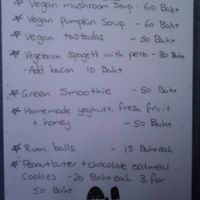 * Vegan mushroom Soup - 60 Baht
* Vegan Pumpkin Soup - 60 Baht
* Vegan tostadas - 50 Baht
* Vegetarian spagetti with pesto - 80 Baht
- Add bacon 10 Baht
* Green Smoothie - 50 Baht
* Homemade yoghurt, fresh fruit
+ honey - 50 Baht
* Rum balls - 15 Baht each
* Peanutbutter + chocolate oatmeal
Cookies - 20 Baht each 3 for
50 Baht